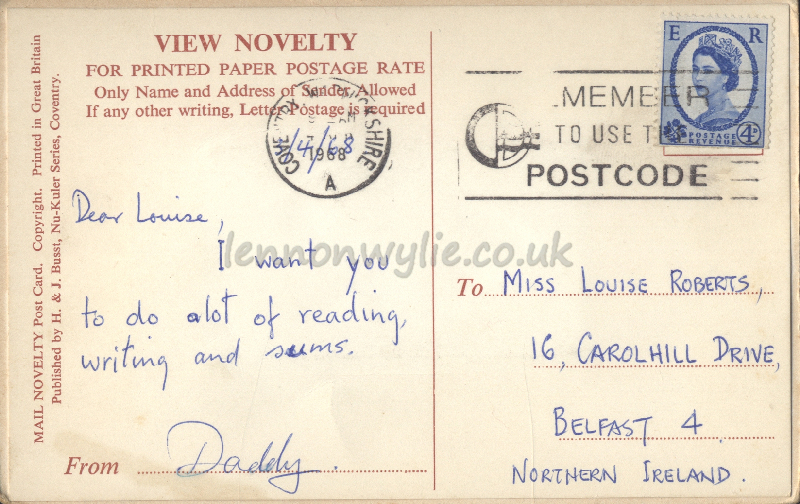 VIEW NOVELTY
FOR PRINTED PAPER POSTAGE RATE
Only Name and Address of Sender Allowed
If any other writing, Letter Postage is required
MAIL NOVELTY Post Card. Copyright. Printed in Great Britain
Published by H. & J. Busst, Nu-Kuler Series, Coventry.
COVENTRY WARWICKSHIRE
1968
A
1/4/68
E R
POSTAGE
REVENUE
4D
MEMBER
TO USE T
POSTCODE
Dear Louise,
I want you
to do alot of reading,
writing and sums.
From Daddy.
To Miss Louise Roberts,
16, Carolhill Drive,
Belfast 4.
Northern Ireland.
lennonwylie.co.uk